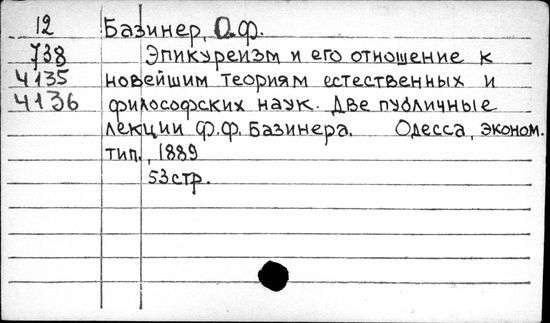 12 Базинер, О.Ф.
738 Эпикуреизм и его отношение к
4135 новейшим теориям естественных и
4136 философских наук. Две публичные
лекции Ф.Ф. Базинера. Одесса, эконом.
тип., 1889
53стр.